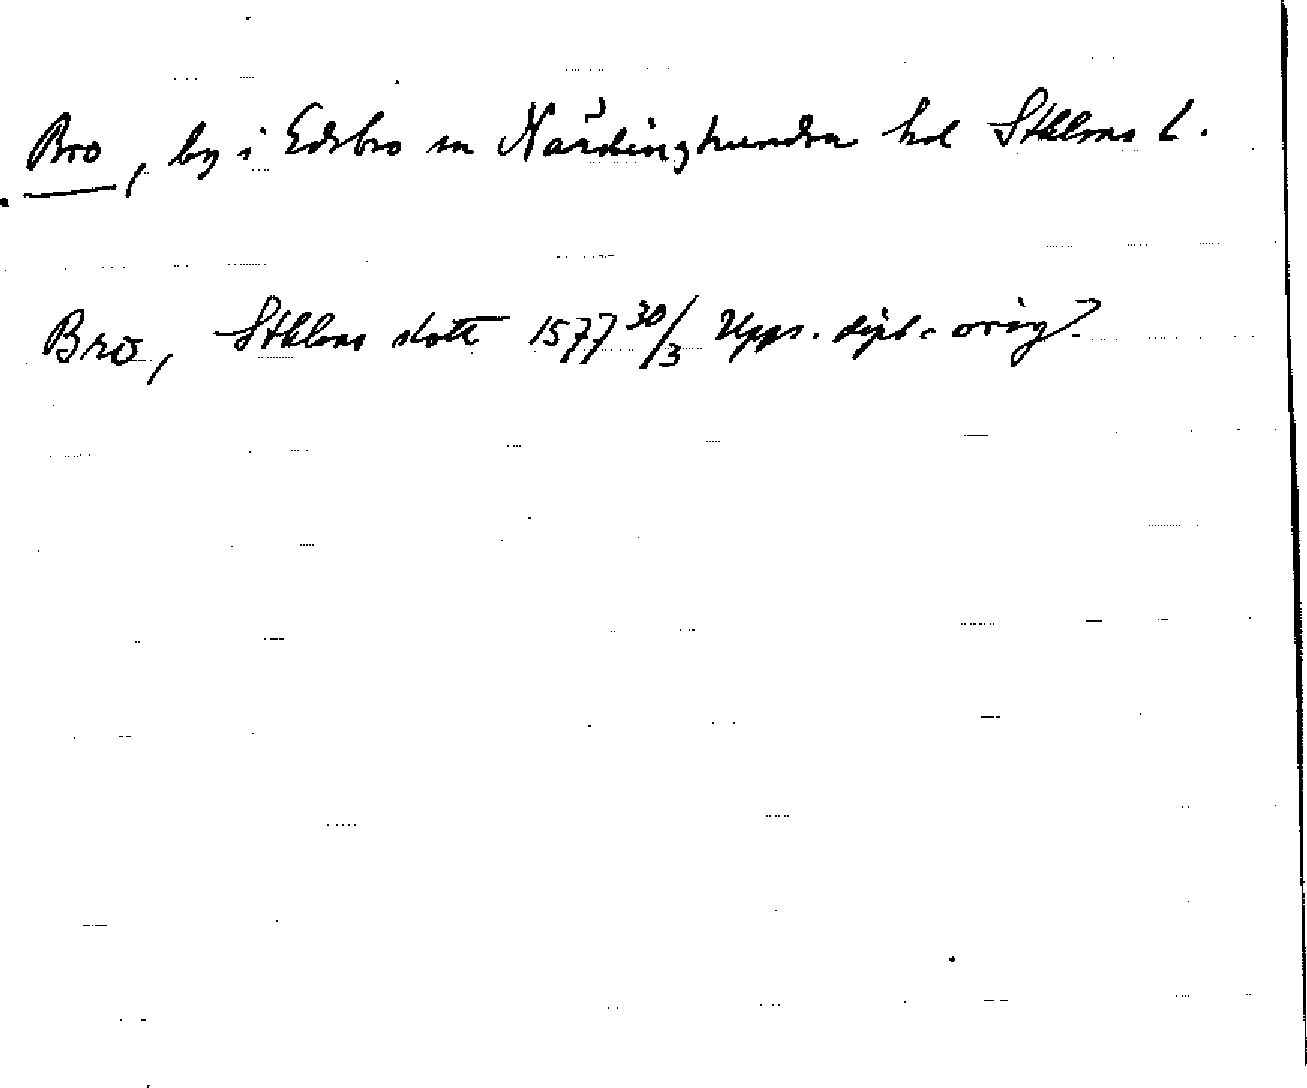 Bro, by i Edsbro sn Närdinghundra hd Sthlms l.
Bro, Sthlms slott 1577 30/3 Upps. dipl. orig.